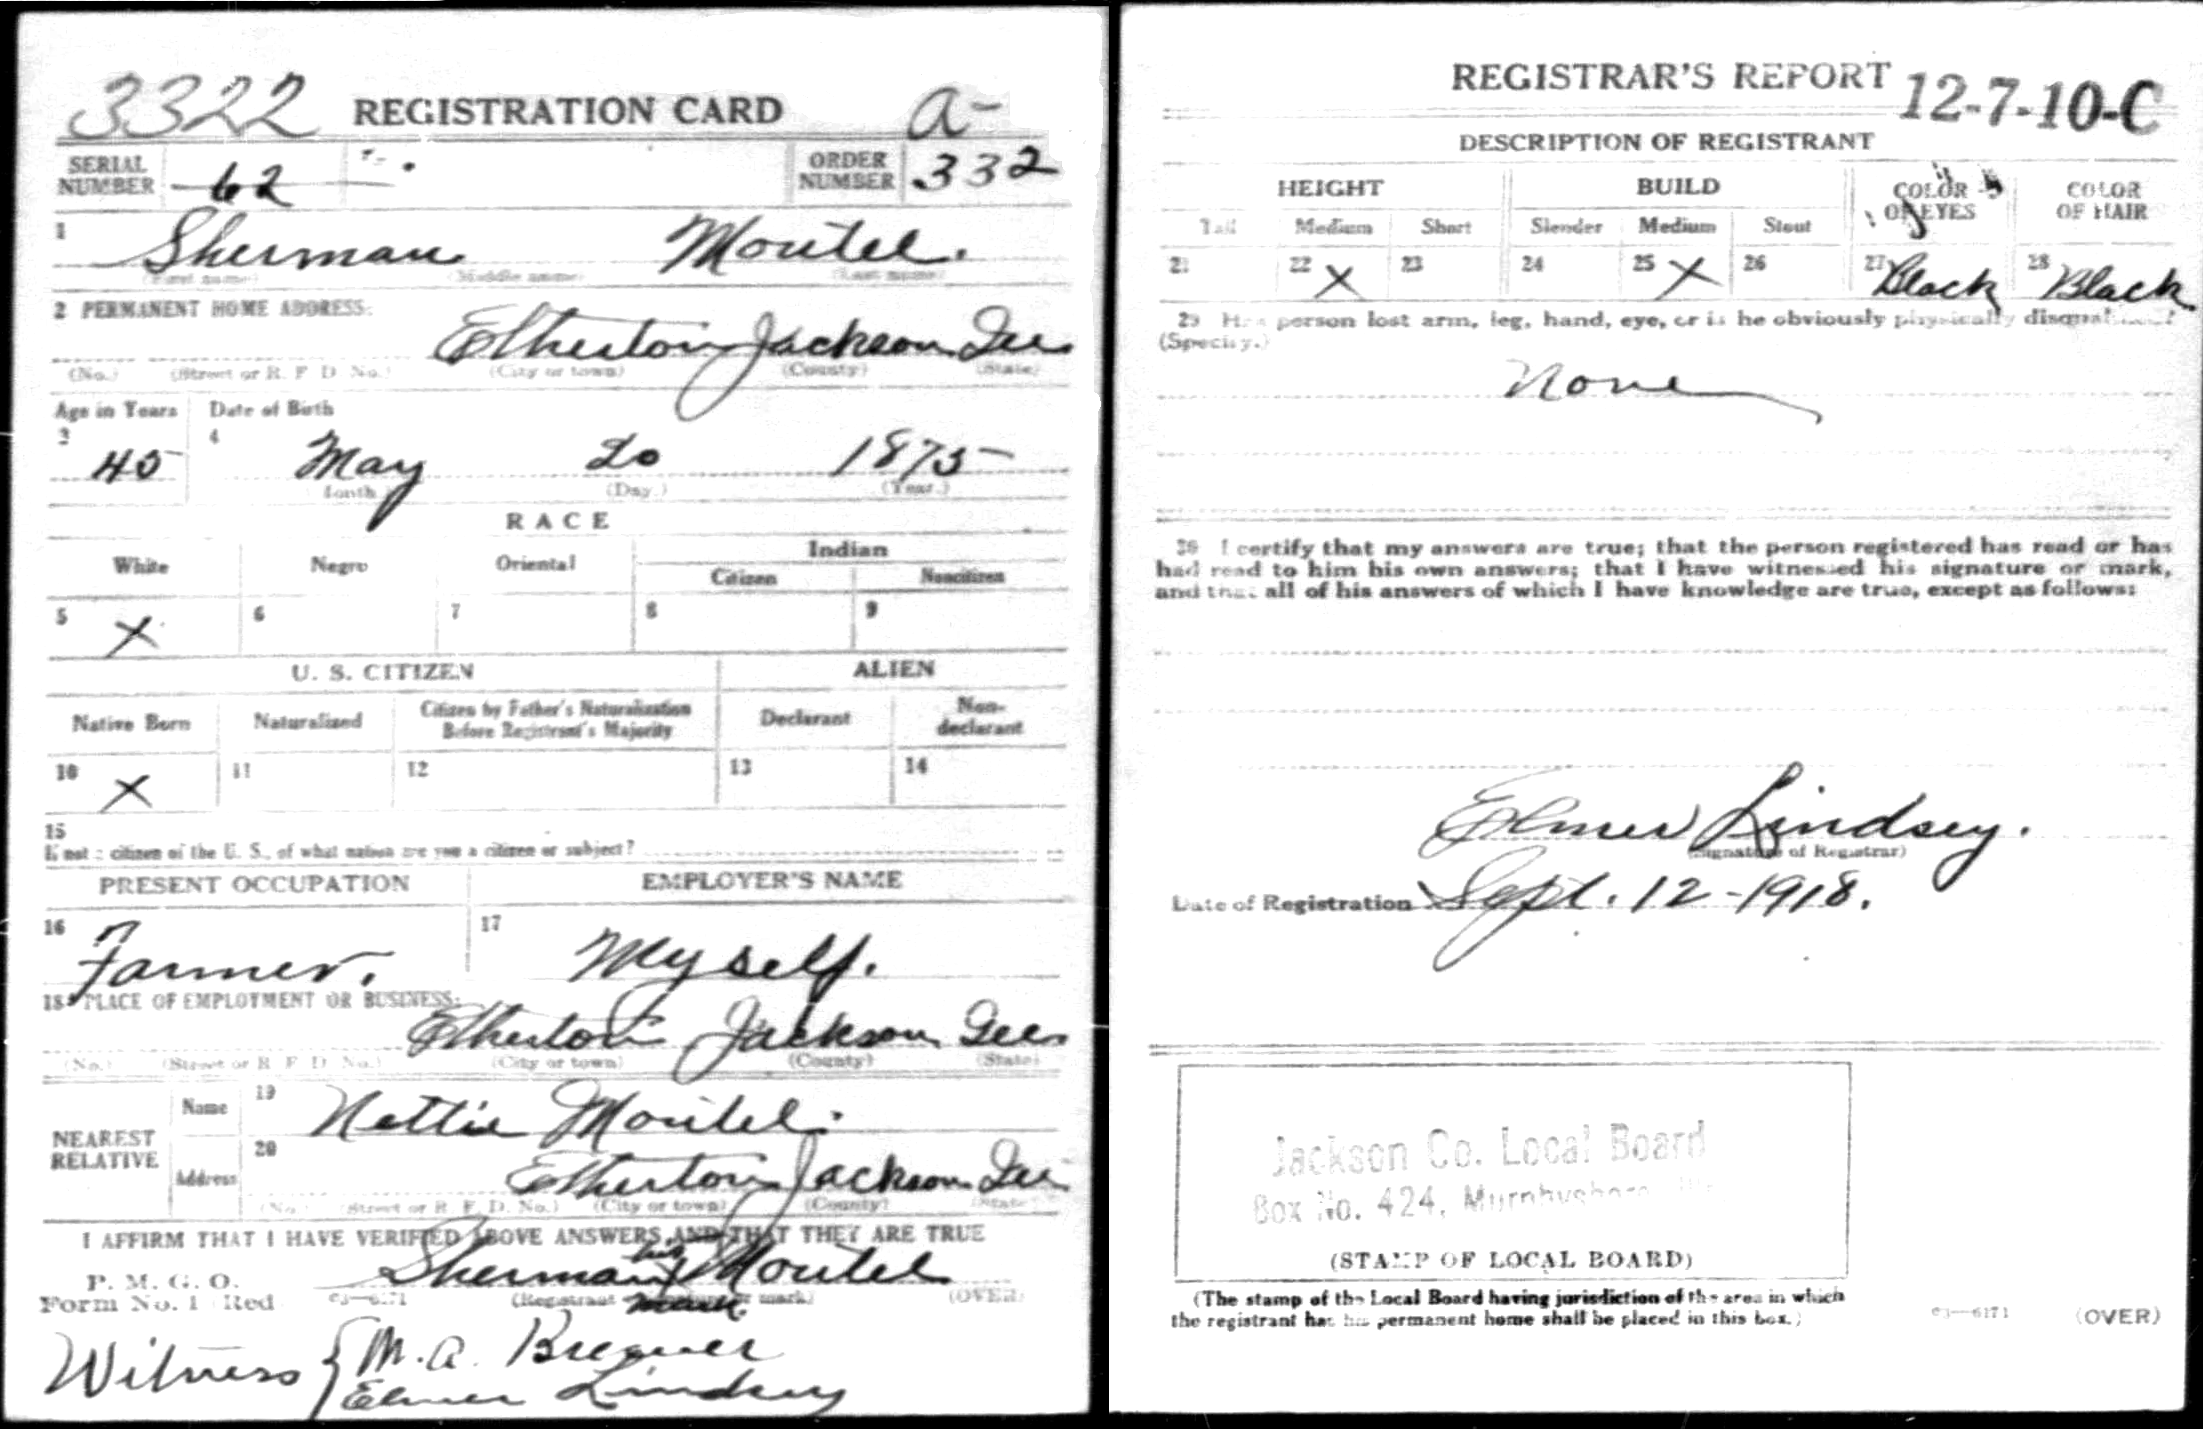 3322 REGISTRATION CARD a-
SERIAL NUMBER 62 ORDER NUMBER 332
1 Sherman Moutel.
(First name) (Middle name) (Last name)
2 PERMANENT HOME ADDRESS:
Etherton Jackson
(No.) (Street or R. F. D. No.) (City or town) (County) (State)
Age in Years Date of Birth
3 45 4 May 20 1873
(Month.) (Day.) (Year.)
RACE
White Negro Oriental Indian
Citizen Noncitizen
5 X 6 7 8 9
U. S. CITIZEN ALIEN
Native Born Naturalized Citizen by Father's Naturalization Before Registrant's Majority Declarant Non-declarant
10 X 11 12 13 14
15
If not a citizen of the U. S., of what nation are you a citizen or subject?
PRESENT OCCUPATION EMPLOYER'S NAME
16 Farmer. 17 Myself.
18 PLACE OF EMPLOYMENT OR BUSINESS:
Etherton Jackson
(No.) (Street or R. F. D. No.) (City or town) (County) (State)
NEAREST RELATIVE Name 19 Nettie Moutel.
Address 20 Etherton Jackson
(No.) (Street or R. F. D. No.) (City or town) (County) (State)
I AFFIRM THAT I HAVE VERIFIED ABOVE ANSWERS AND THAT THEY ARE TRUE
P. M. G. O.
Form No. 1 (Red) 03—6171 Sherman his X mark Moutel
(Registrant's signature or mark) (OVER)
Witness { M. A.
Elmer Lindsey
REGISTRAR'S REPORT 12-7-10-C
DESCRIPTION OF REGISTRANT
HEIGHT BUILD COLOR OF EYES COLOR OF HAIR
Tall Medium Short Slender Medium Stout
21 22 X 23 24 25 X 26 27 Black 28 Black
29 Has person lost arm, leg, hand, eye, or is he obviously physically disqualified?
(Specify.)
None
30 I certify that my answers are true; that the person registered has read or has
had read to him his own answers; that I have witnessed his signature or mark,
and that all of his answers of which I have knowledge are true, except as follows:
Elmer Lindsey.
(Signature of Registrar)
Date of Registration Sept. 12-1918.
Jackson Co. Local Board
Box No. 424, Murphysboro
(STAMP OF LOCAL BOARD)
(The stamp of the Local Board having jurisdiction of the area in which
the registrant has his permanent home shall be placed in this box.)
03—6171 (OVER)